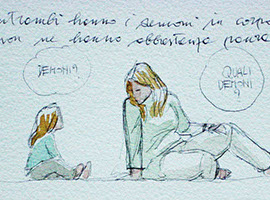 entrambi hanno i demoni in corpo
non ne hanno abbastanza paura
DEMONI?
QUALI
DEMONI
?